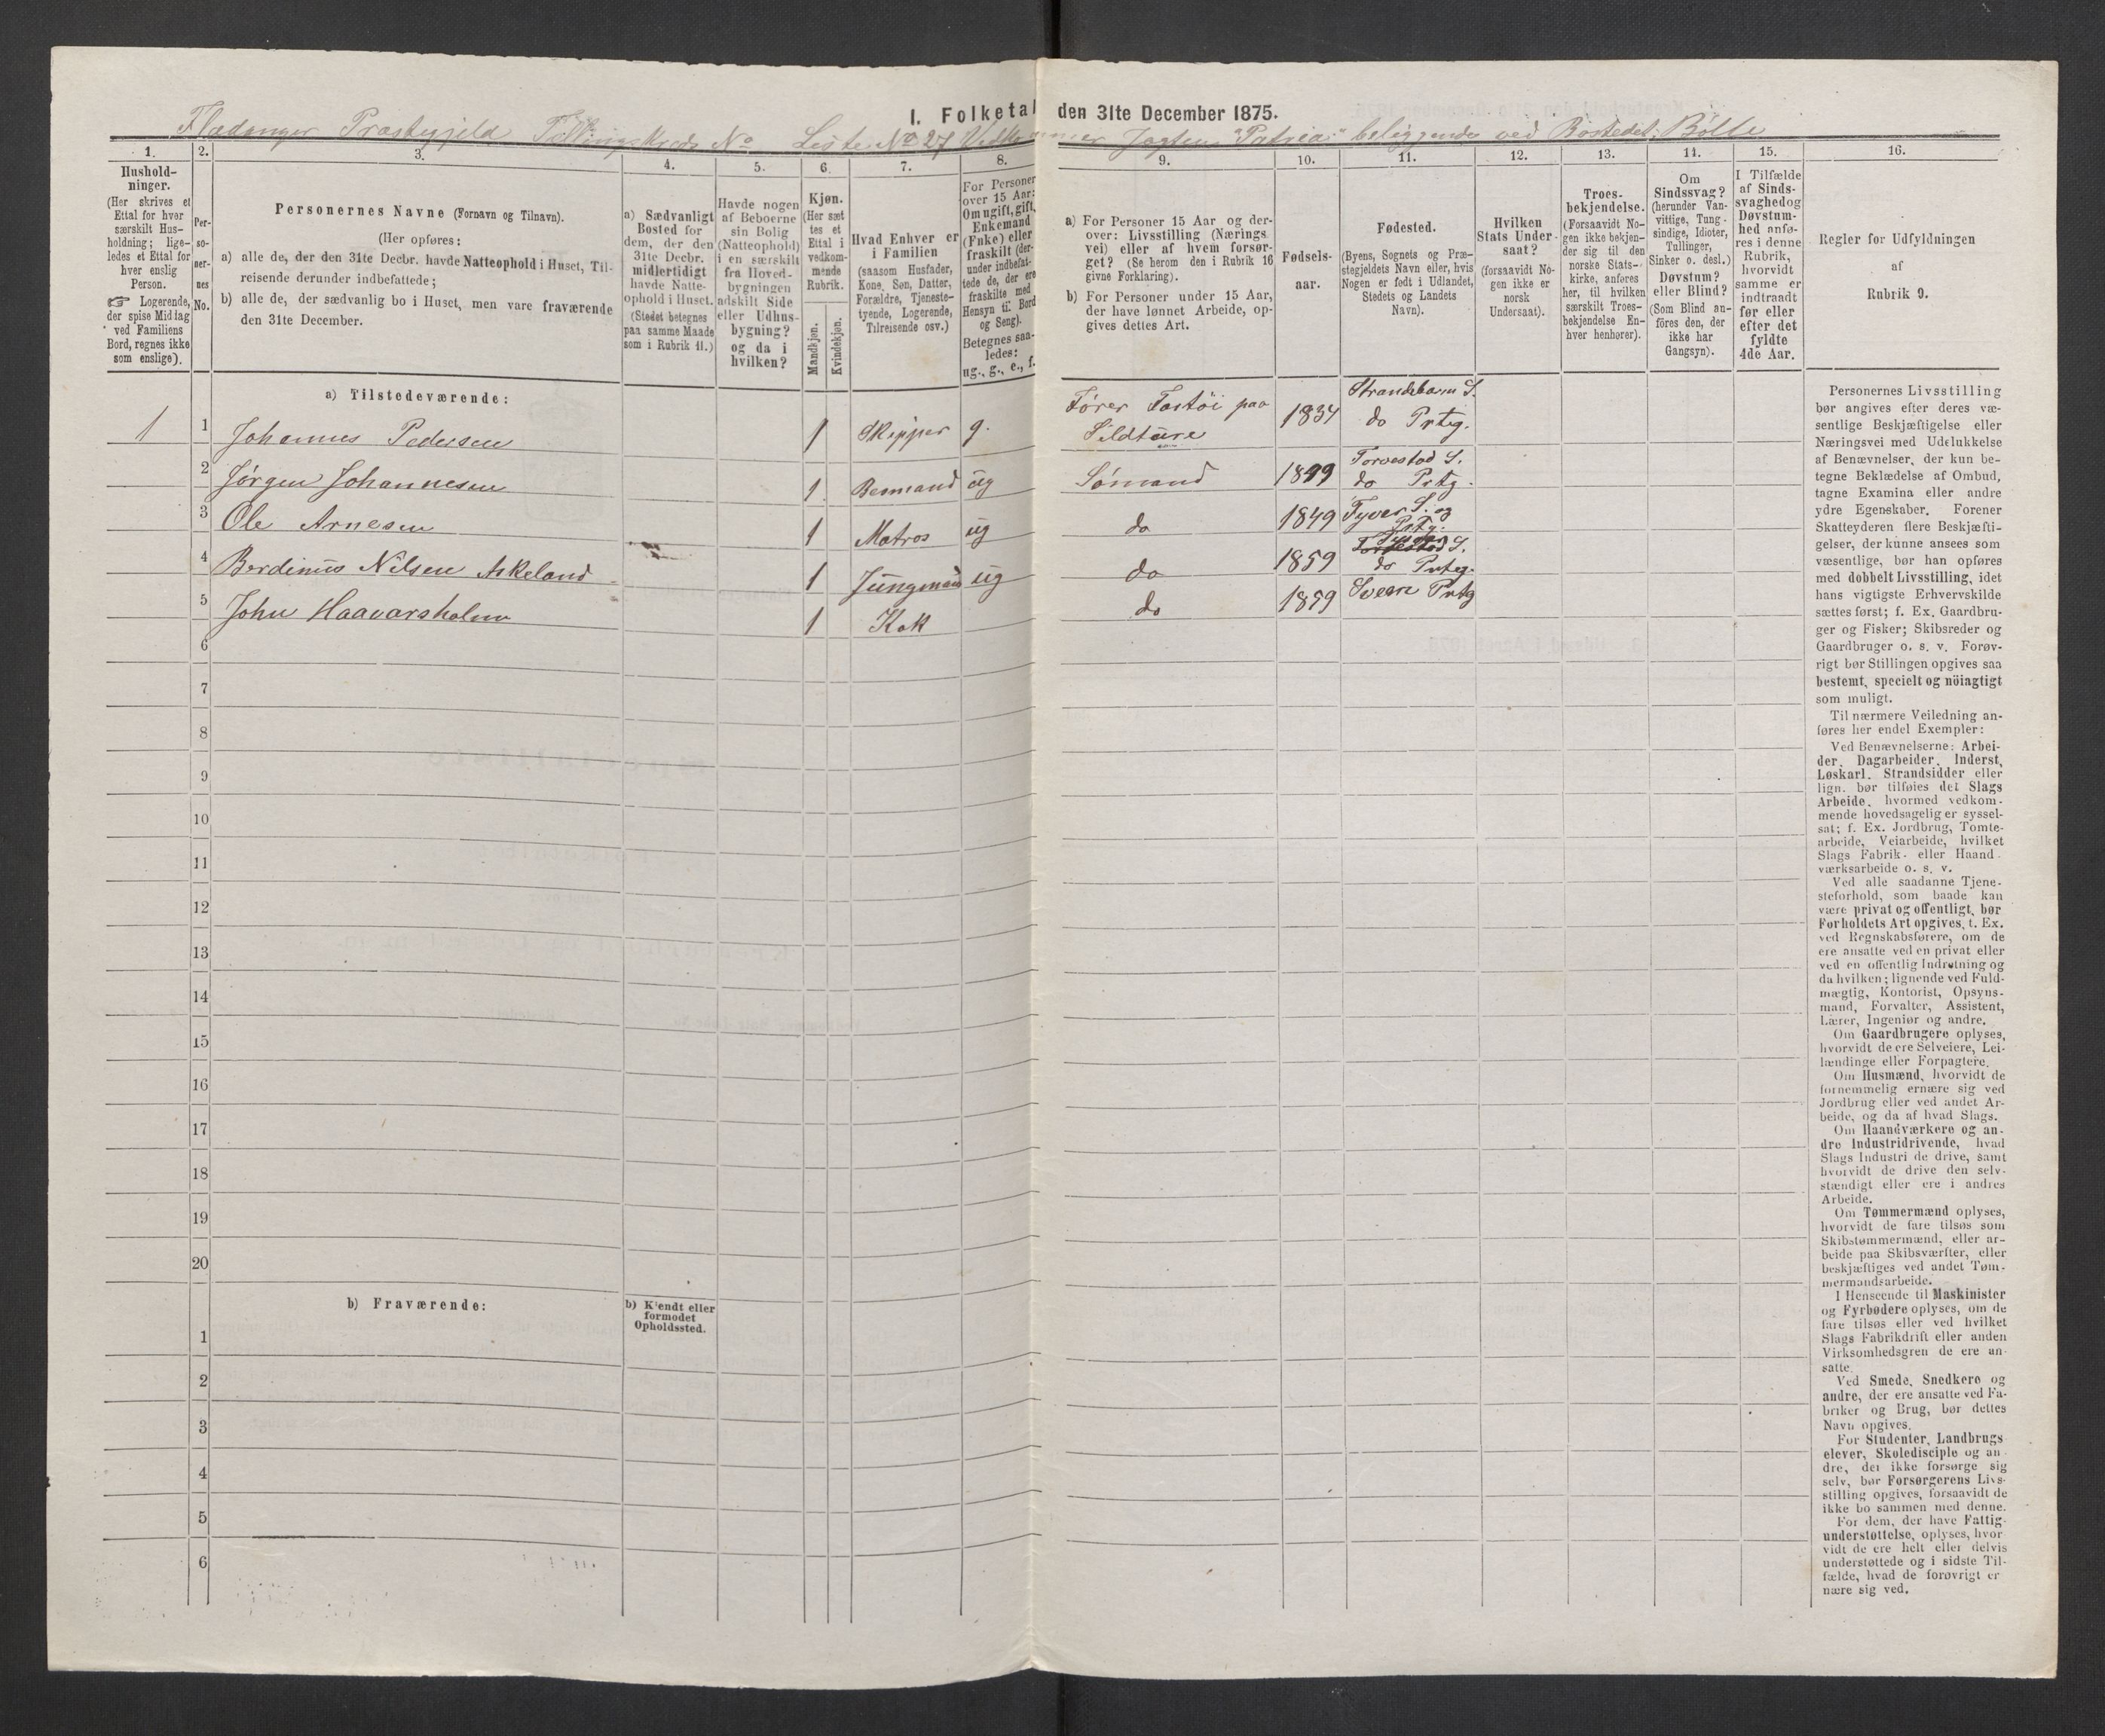 I. Folketal den 31te December 1875.
Fladanger Præstegjeld Tellingskreds No Liste No 27 Vedkommer Jagten "Patria" beliggende ved Bostedet: Bölle
1.
2.
3.
4.
5.
6.
7.
8.
9.
10.
11.
12.
13.
14.
15.
16.
Hushold-
ninger.
(Her skrives et
Ettal for hver
særskilt Hus-
holdning; lige-
ledes et Ettal for
hver enslig
Person.
☞ Logerende,
der spise Middag
ved Familiens
Bord, regnes ikke
som enslige).
Per-
so-
ner-
nes
No.
Personernes Navne (Fornavn og Tilnavn).
(Her opføres:
a) alle de, der den 31te Decbr. havde Natteophold i Huset, Til-
reisende derunder indbefattede;
b) alle de, der sædvanlig bo i Huset, men vare fraværende
den 31te December.
a) Sædvanligt
Bosted for
dem, der den
31te Decbr.
midlertidigt
havde Natte-
ophold i Huset.
(Stedet betegnes
paa samme Maade
som i Rubrik 11.)
Havde nogen
af Beboerne
sin Bolig
(Natteophold)
i en særskilt
fra Hoved-
bygningen
adskilt Side
eller Udhus-
bygning?
og da i
hvilken?
Kjøn.
(Her sæt
tes et
Ettal i
vedkom-
mende
Rubrik.
Mandkjøn.
Kvindekjøn.
Hvad Enhver er
i Familien
(saasom Husfader,
Kone, Søn, Datter,
Forældre, Tjeneste-
tyende, Logerende,
Tilreisende osv.)
For Personer
over 15 Aar:
Om ugift, gift,
Enkemand
(Enke) eller
fraskilt (der-
under indbefat-
tede de, der ere
fraskilte med
Hensyn til Bord
og Seng).
Betegnes saa-
ledes:
ug., g., e., f.
a) For Personer 15 Aar og der-
over: Livsstilling (Nærings
vei) eller af hvem forsør-
get? (Se herom den i Rubrik 16
givne Forklaring).
b) For Personer under 15 Aar,
der have lønnet Arbeide, op-
gives dettes Art.
Fødsels-
aar.
Fødested.
(Byens, Sognets og Præ-
stegjeldets Navn eller, hvis
Nogen er født i Udlandet,
Stedets og Landets
Navn).
Hvilken
Stats Under-
saat?
(forsaavidt No-
gen ikke er
norsk
Undersaat).
Troes-
bekjendelse.
(Forsaavidt No-
gen ikke bekjen-
der sig til den
norske Stats-
kirke, anføres
her, til hvilken
særskilt Troes-
bekjendelse En-
hver henhører).
Om
Sindssvag?
(herunder Van-
vittige, Tung-
sindige, Idioter,
Tullinger,
Sinker o. desl.)
Døvstum?
eller Blind?
(Som Blind an-
föres den, der
ikke har
Gangsyn).
I Tilfælde
af Sinds-
svaghedog
Døvstum-
hed anfø-
res i denne
Rubrik,
hvorvidt
samme er
indtraadt
før eller
efter det
fyldte
4de Aar.
Regler for Udfyldningen
af
Rubrik 9.
a) Tilstedeværende:
1 1 Johannes Pedersen 1 Skipper g. Fører Fartöi paa Sildture 1834 Strandebarm S. do Prtg.
2 Jörgen Johannesen 1 Besmand ug Sömand 1899 Torvestad S. do Prtg.
3 Ole Arnesen 1 Matros ug do 1849 Tysver S. og Prtg.
4 Berdinus Nilsen Askeland 1 Jungmand ug do 1859 Torvestad S. do Prtg.
5 John Haavarsholm 1 Kok do 1859 Sveen Prtg
6
7
8
9
10
11
12
13
14
15
16
17
18
19
20
b) Fraværende:
b) Kjendt eller
formodet
Opholdssted.
1
2
3
4
5
6
Personernes Livsstilling
bør angives efter deres væ-
sentlige Beskjæftigelse eller
Næringsvei med Udelukkelse
af Benævnelser, der kun be-
tegne Beklædelse af Ombud,
tagne Examina eller andre
ydre Egenskaber. Forener
Skatteyderen flere Beskjæfti-
gelser, der kunne ansees som
væsentlige, bør han opføres
med dobbelt Livsstilling, idet
hans vigtigste Erhvervskilde
sættes først; f. Ex. Gaardbru-
ger og Fisker; Skibsreder og
Gaardbruger o. s. v. Forøv-
rigt bør Stillingen opgives saa
bestemt, specielt og nöiagtigt
som muligt.
Til nærmere Veiledning an-
føres her endel Exempler:
Ved Benævnelserne: Arbei-
der, Dagarbeider, Inderst,
Løskarl, Strandsidder eller
lign. bør tilføies det Slags
Arbeide, hvormed vedkom-
mende hovedsagelig er syssel-
sat; f. Ex. Jordbrug, Tomte-
arbeide, Veiarbeide, hvilket
Slags Fabrik- eller Haand-
værksarbeide o. s. v.
Ved alle saadanne Tjene-
steforhold, som baade kan
være privat og offentligt, bør
Forholdets Art opgives, t. Ex.
ved Regnskabsførere, om de
ere ansatte ved en privat eller
ved en offentlig Indretning og
da hvilken; lignende ved Fuld-
mægtig, Kontorist, Opsyns-
mand, Forvalter, Assistent,
Lærer, Ingeniør og andre.
Om Gaardbrugere oplyses,
hvorvidt de ere Selveiere, Lei-
lændinge eller Forpagtere.
Om Husmænd, hvorvidt de
fornemmelig ernære sig ved
Jordbrug eller ved andet Ar-
beide, og da af hvad Slags.
Om Haandværkere og an-
dre Industridrivende, hvad
Slags Industri de drive, samt
hvorvidt de drive den selv-
stændigt eller ere i andres
Arbeide.
Om Tømmermænd oplyses,
hvorvidt de fare tilsøs som
Skibstømmermænd, eller ar-
beide paa Skibsværfter, eller
beskjæftiges ved andet Tøm-
mermandsarbeide.
I Henseende til Maskinister
og Fyrbødere oplyses, om de
fare tilsøs eller ved hvilket
Slags Fabrikdrift eller anden
Virksomhedsgren de ere an-
satte.
Ved Smede, Snedkere og
andre, der ere ansatte ved Fa-
briker og Brug, bør dettes
Navn opgives.
For Studenter, Landbrugs
elever, Skoledisciple og an-
dre, der ikke forsørge sig
selv, bør Forsørgerens Livs-
stilling opgives, forsaavidt de
ikke bo sammen med denne.
For dem, der have Fattig-
understøttelse, oplyses, hvor-
vidt de ere helt eller delvis
understøttede og i sidste Til-
fælde, hvad de forøvrigt er-
nære sig ved.